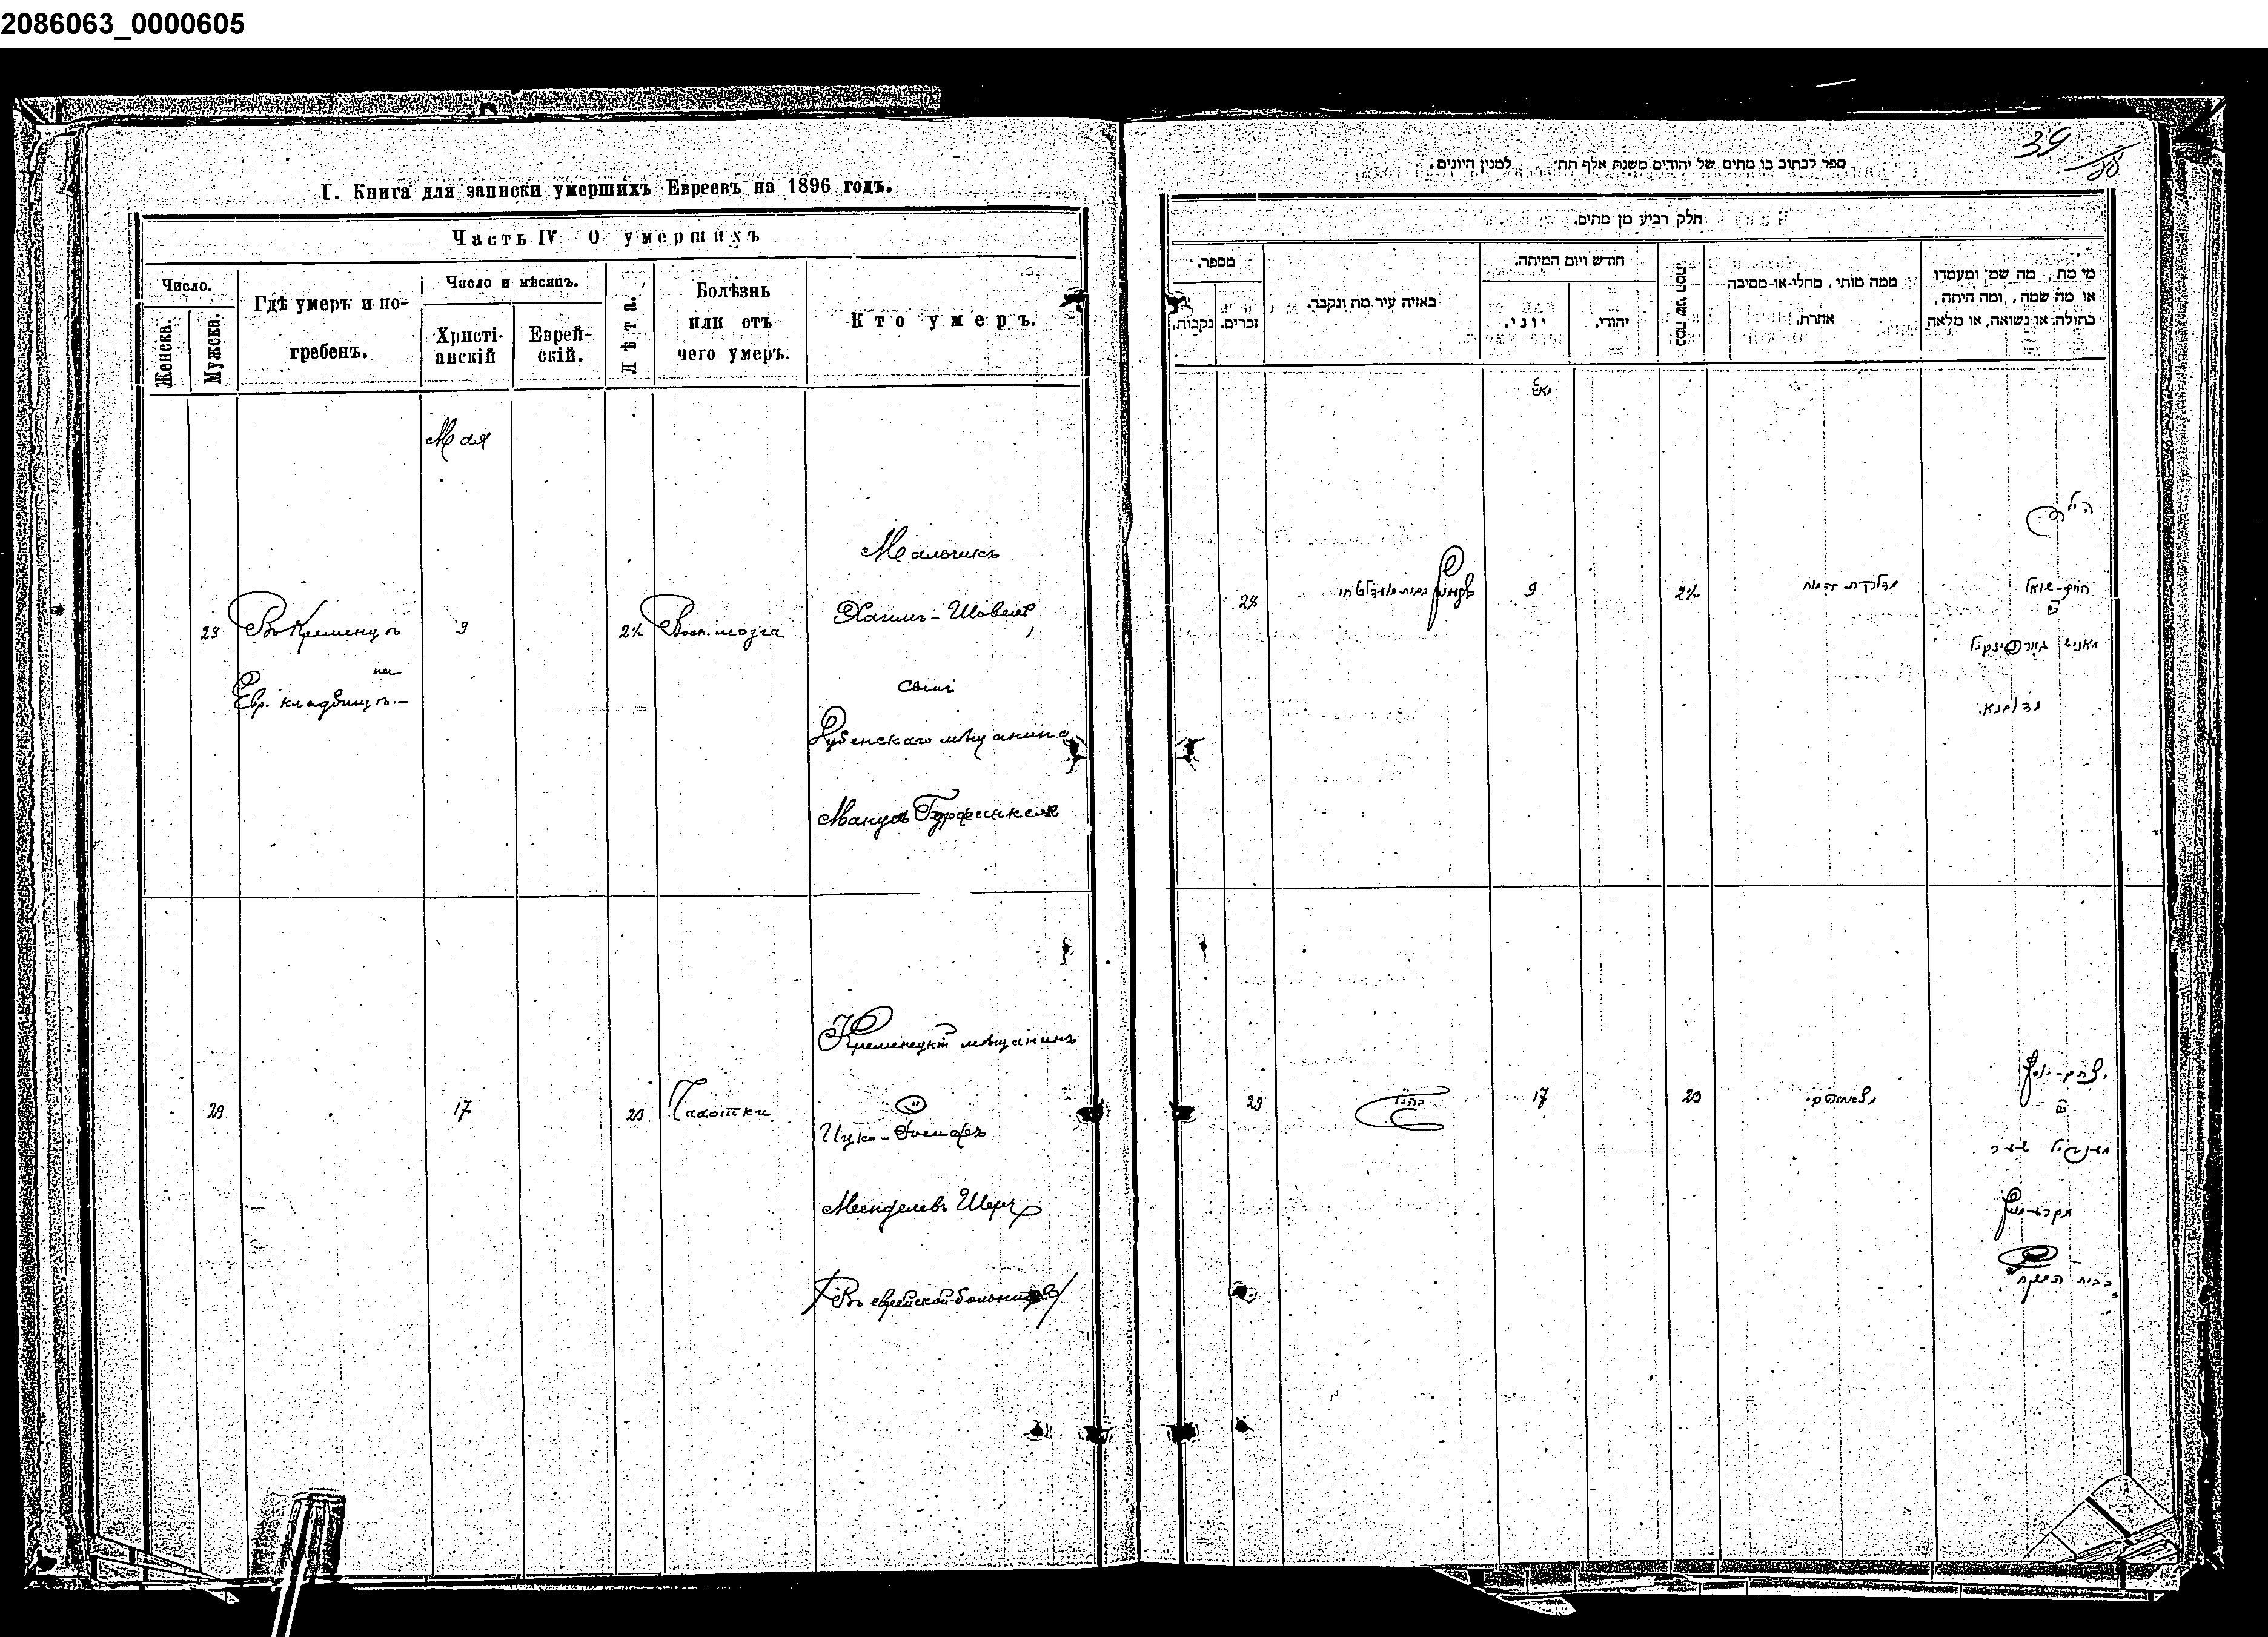 2086063_0000605
I. Книга для записки умершихъ Евреевъ на 1896 годъ.
Часть IV О умершихъ
Число.
Женска.
Мужска.
Гдѣ умеръ и по-
гребенъ.
Число и мѣсяцъ.
Христі-
анскій
Еврей-
скій.
Лѣта.
Болѣзнь
или отъ
чего умеръ.
Кто умеръ.
Мая
28
Въ Кременцѣ
на
Евр. кладбищѣ.—
9
2½
Восп. мозга
Мальчикъ
Хаимъ-Шовель,
сынъ
Дубенскаго мѣщанина
Мануса Гурфинкеля
29
17
23
Чахотки
Кременецкій мѣщанинъ
Ицко-Іосифъ
Менделевъ Шеръ
/Въ еврейской больницѣ/
39
ספר לכתוב בו מתים של יהודים משנת אלף תת׳ למנין היונים.
חלק רביע מן מתים.
מספר.
נקבות.
זכרים.
באיזה עיר מת ונקבר.
חודש ויום המיתה.
יוני.
יהודי.
כמה שני המת.
ממה מותי, מחלי או מסיבה
אחרת.
מי מת, מה שמו ומעמדו
או מה שמה, ומה היתה,
בתולה או נשואה, או מלאה
מאי
28
9
2½
מדלקת המוח
הילד
חיים-שואל
ב
מאניס גורפינקיל
מדובנא.
29
כהנ״ל
17
23
יצחק-יוסף
ב
מענדיל שער